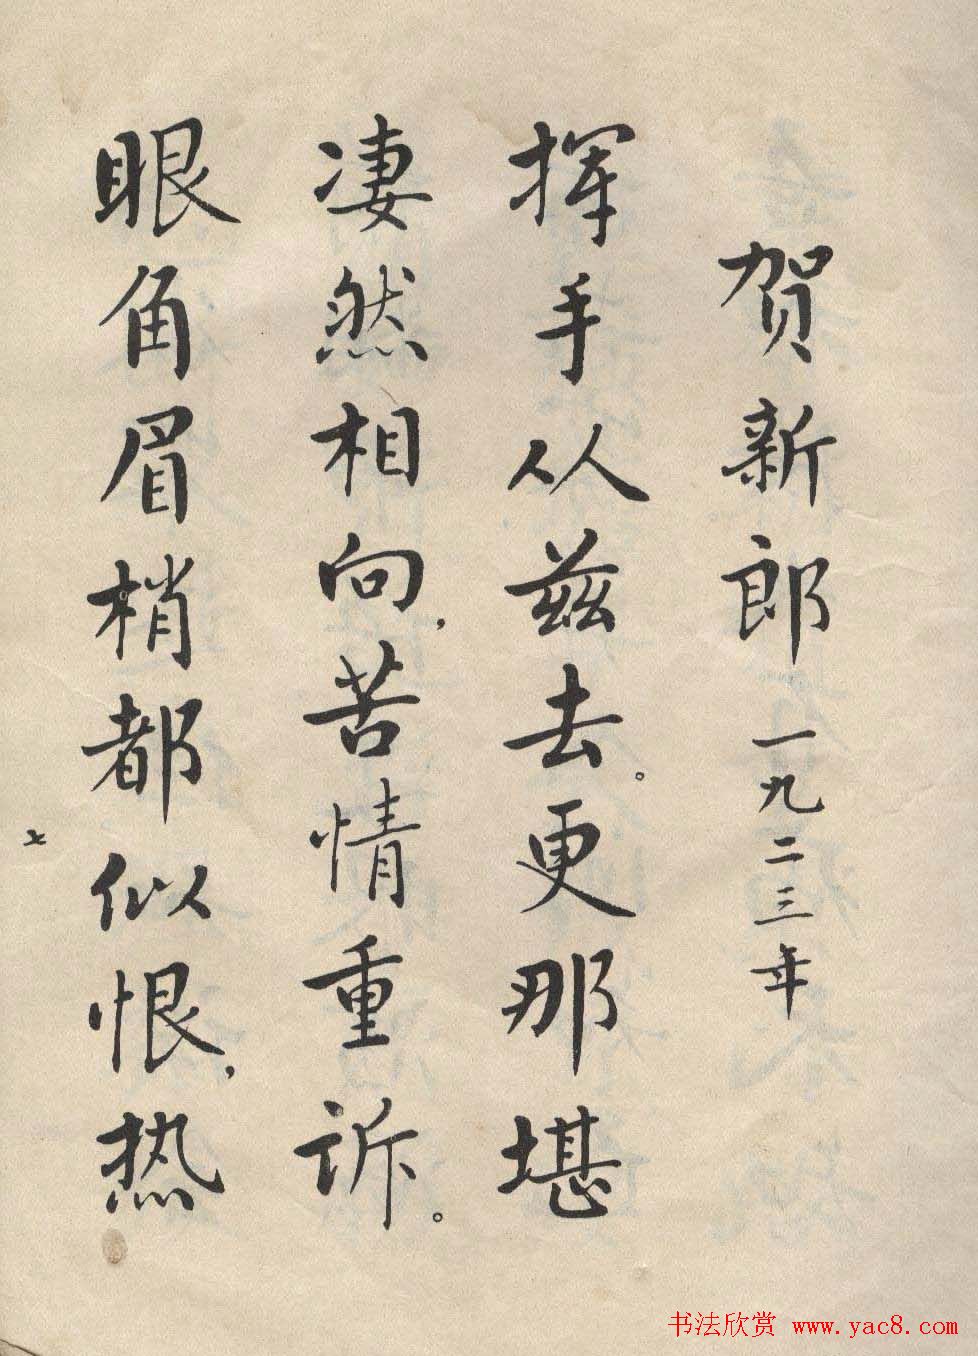 贺新郎 一九二三年
挥手从兹去。更那堪
凄然相向,苦情重诉。
眼角眉梢都似恨,热
七
书法欣赏 www.yac8.com